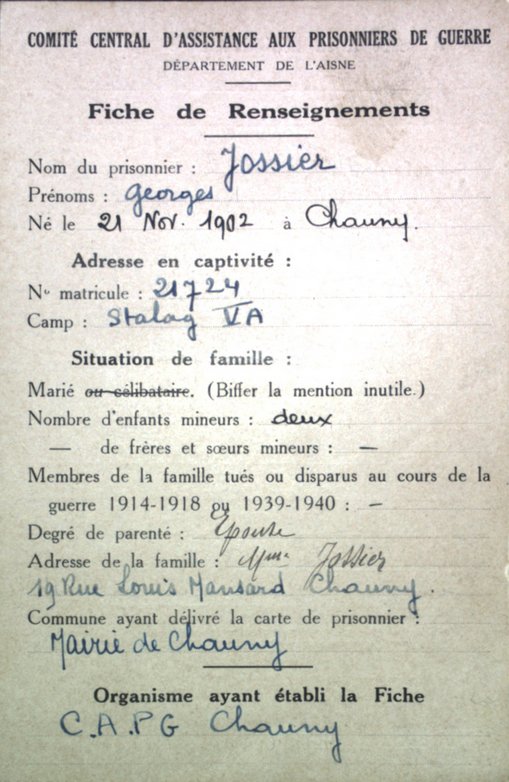 COMITÉ CENTRAL D'ASSISTANCE AUX PRISONNIERS DE GUERRE
DÉPARTEMENT DE L'AISNE
Fiche de Renseignements
Nom du prisonnier : Jossier
Prénoms : Georges
Né le 21 Nov. 1902 à Chauny.
Adresse en captivité :
N° matricule : 21724
Camp : Stalag VA
Situation de famille :
Marié ou célibataire. (Biffer la mention inutile.)
Nombre d'enfants mineurs : deux
— de frères et sœurs mineurs : —
Membres de la famille tués ou disparus au cours de la
guerre 1914-1918 ou 1939-1940 : —
Degré de parenté : Epouse
Adresse de la famille : Mme Jossier
19 Rue Louis Mansard Chauny.
Commune ayant délivré la carte de prisonnier :
Mairie de Chauny
Organisme ayant établi la Fiche
C.A.P.G Chauny